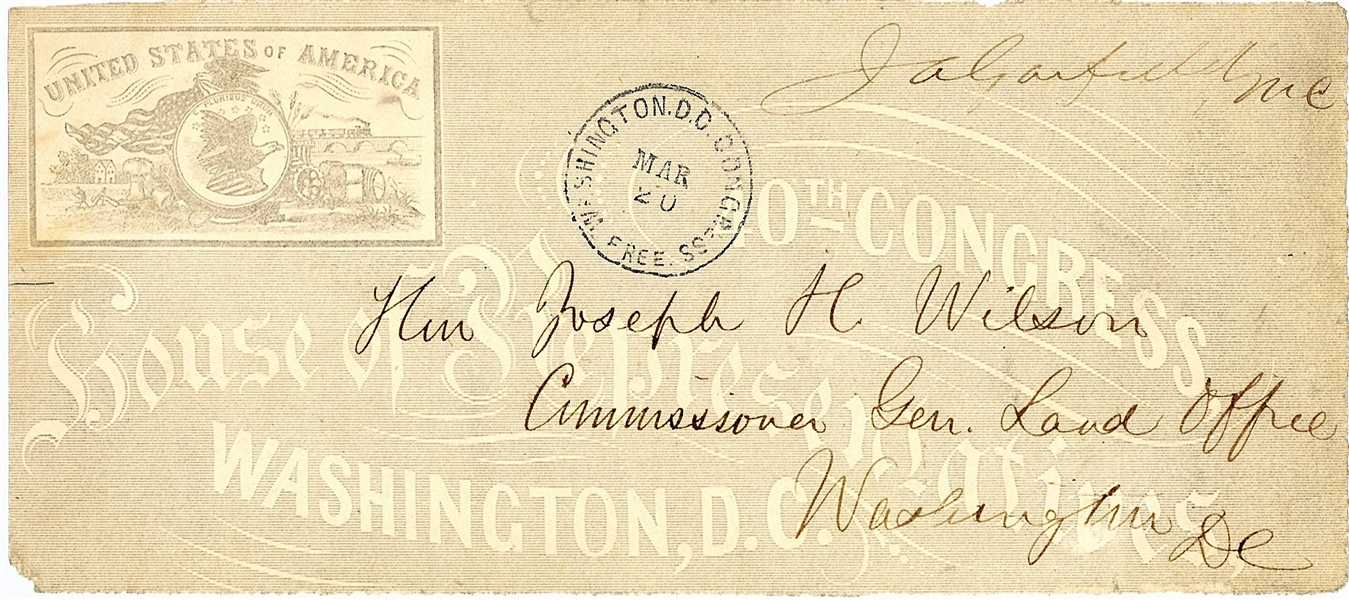 UNITED STATES OF AMERICA
PLURIBUS UNUM
J A Garfield, MC
WASHINGTON. D.C. CONGRESS
MAR
20
FREE.
40TH CONGRESS
House of Representatives,
WASHINGTON, D.C.
Hon Joseph H. Wilson
Commissioner Gen. Land Office
Washington DC